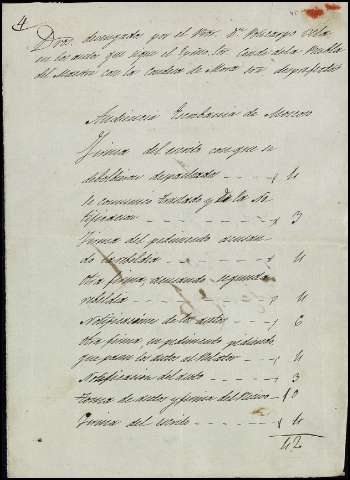 4
Dros. devengados por el Pror. Dn. Policarpo
en los autos que sigue el Exmo. Sor. Conde de la Puebla
del Maestre con la Condesa de Mora sre. despojo
Audiencia Escribania de
Firma del escrito con que se
devolvieron despachado - - 4
se comunico traslado y de la No
tificacion - - - - 3
Firma del pedimento acusan
do la rebeldia - - - - 4
Otra firma, acusando segunda
rebeldia - - - - 4
Notificaciones de los autos - - 6
Otra firma, en pedimento pidiendo
que pasen los autos al Relator - - 4
Notificacion del auto - - - 3
Toma de autos y firma del Recivo - 10
Firma del escrito - - - - 4
42